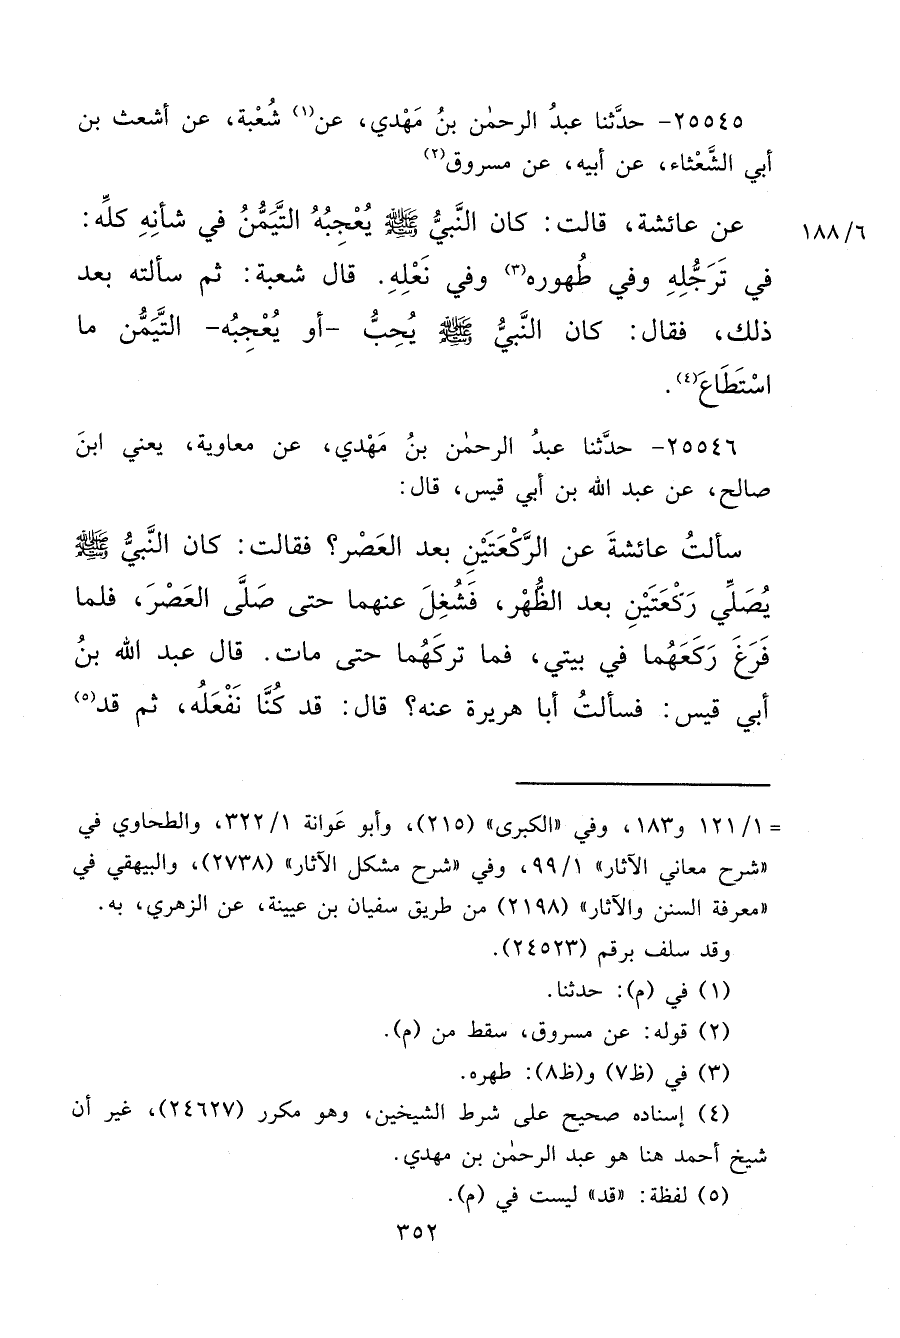 ٢٥٥٤٥- حدَّثنا عبدُ الرحمٰن بنُ مَهْدي، عن(١) شُعْبة، عن أشعث بن
أبي الشَّعْثاء، عن أبيه، عن مسروق(٢)
عن عائشة، قالت: كان النَّبيُّ ﷺ يُعْجِبُهُ التَّيَمُّنُ في شأنِهِ كلِّه:
١٨٨/٦
في تَرَجُّلِهِ وفي طُهوره(٣) وفي نَعْلِهِ. قال شعبة: ثم سألته بعد
ذلك، فقال: كان النَّبيُّ ﷺ يُحِبُّ -أو يُعْجِبُه- التَّيَمُّن ما
اسْتَطَاعَ(٤).
٢٥٥٤٦- حدَّثنا عبدُ الرحمٰن بنُ مَهْدي، عن معاوية، يعني ابنَ
صالح، عن عبد الله بن أبي قيس، قال:
سألتُ عائشةَ عن الرَّكْعَتَيْنِ بعد العَصْر؟ فقالت: كان النَّبيُّ ﷺ
يُصَلِّي رَكْعَتَيْنِ بعد الظُّهْر، فَشُغِلَ عنهما حتى صَلَّى العَصْرَ، فلما
فَرَغَ رَكَعَهُما في بيتي، فما تركَهُما حتى مات. قال عبد الله بنُ
أبي قيس: فسألتُ أبا هريرة عنه؟ قال: قد كُنَّا نَفْعَلُه، ثم قد(٥)
= ١٢١/١ و١٨٣، وفي «الكبرى» (٢١٥)، وأبو عَوانة ٣٢٢/١، والطحاوي في
«شرح معاني الآثار» ٩٩/١، وفي «شرح مشكل الآثار» (٢٧٣٨)، والبيهقي في
«معرفة السنن والآثار» (٢١٩٨) من طريق سفيان بن عيينة، عن الزهري، به.
وقد سلف برقم (٢٤٥٢٣).
(١) في (م): حدثنا.
(٢) قوله: عن مسروق، سقط من (م).
(٣) في (ظ٧) و(ظ٨): طهره.
(٤) إسناده صحيح على شرط الشيخين، وهو مكرر (٢٤٦٢٧)، غير أن
شيخ أحمد هنا هو عبد الرحمٰن بن مهدي.
(٥) لفظة: «قد» ليست في (م).
٣٥٢